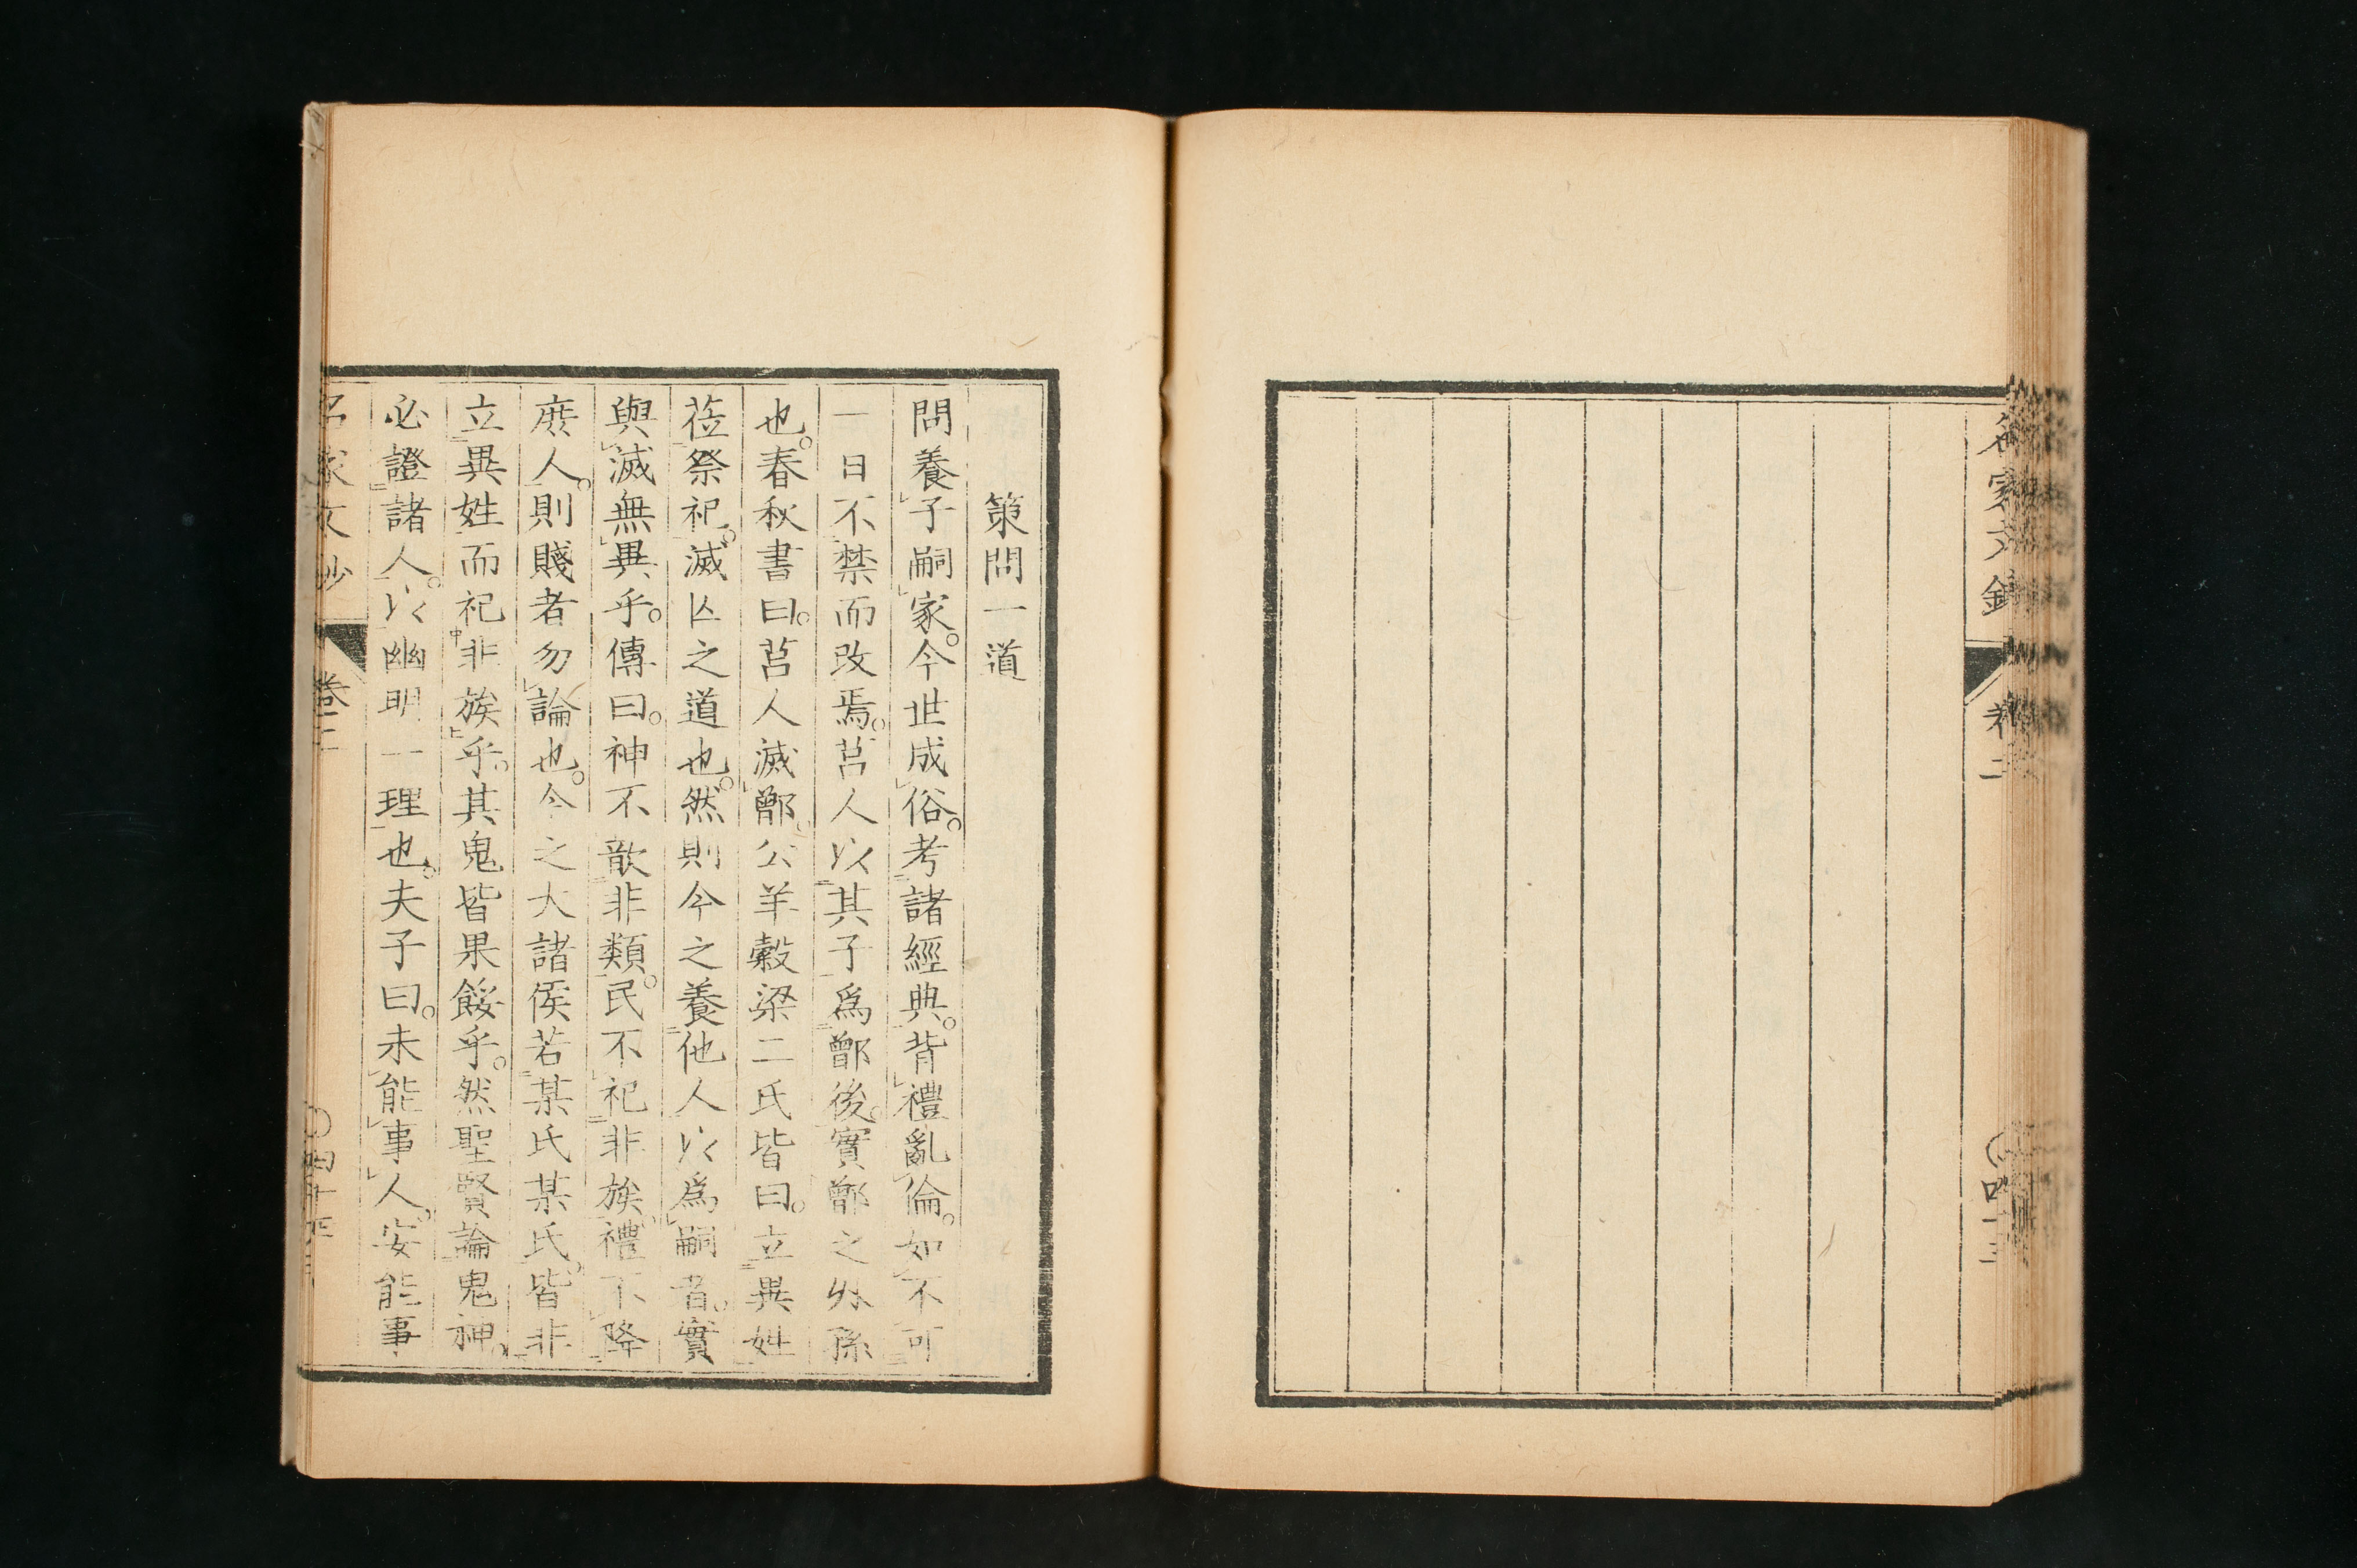 策問一道
問養子嗣家。今世成俗。考諸經典。背禮亂倫。如不可
一日不禁而改焉。莒人以其子爲鄫後。實鄫之外孫
也。春秋書曰。莒人滅鄫。公羊穀梁二氏皆曰。立異姓
莅祭祀。滅亾之道也。然則今之養他人以爲嗣者。實
與滅無異乎。傳曰。神不歆非類。民不祀非族。禮不降
庶人。則賤者勿論也。今之大諸侯若某氏某氏。皆非
立異姓而祀非族乎。其鬼皆果餒乎。然聖賢論鬼神。
必證諸人。以幽明一理也。夫子曰。未能事人。安能事
名家文抄
卷二